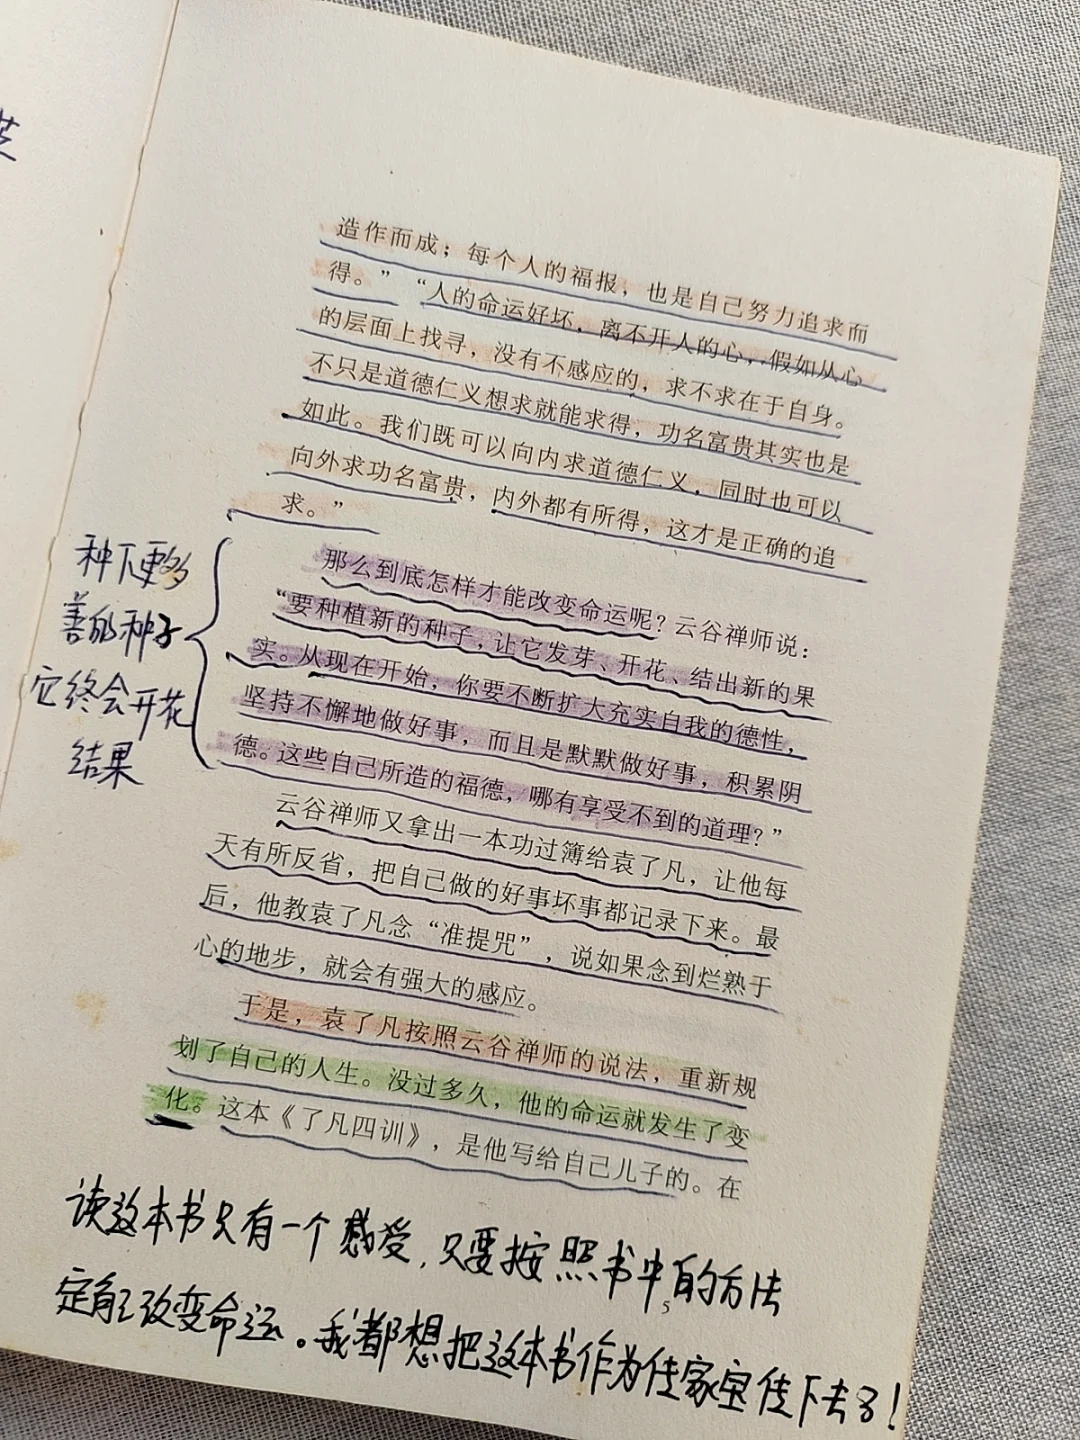 芝
造作而成；每个人的福报，也是自己努力追求而
得。”“人的命运好坏，离不开人的心，假如从心
的层面上找寻，没有不感应的，求不求在于自身。
不只是道德仁义想求就能求得，功名富贵其实也是
如此。我们既可以向内求道德仁义，同时也可以
向外求功名富贵，内外都有所得，这才是正确的追
求。”
那么到底怎样才能改变命运呢？云谷禅师说：
“要种植新的种子，让它发芽、开花、结出新的果
实。从现在开始，你要不断扩大充实自我的德性，
坚持不懈地做好事，而且是默默做好事，积累阴
德。这些自己所造的福德，哪有享受不到的道理？”
云谷禅师又拿出一本功过簿给袁了凡，让他每
天有所反省，把自己做的好事坏事都记录下来。最
后，他教袁了凡念“准提咒”，说如果念到烂熟于
心的地步，就会有强大的感应。
于是，袁了凡按照云谷禅师的说法，重新规
划了自己的人生。没过多久，他的命运就发生了变
化。这本《了凡四训》，是他写给自己儿子的。在
种下更多
善的种子
它终会开花
结果
读这本书只有一个感受，只要按照书中的方法
5
定能改变命运。我都想把这本书作为传家宝传下去了！